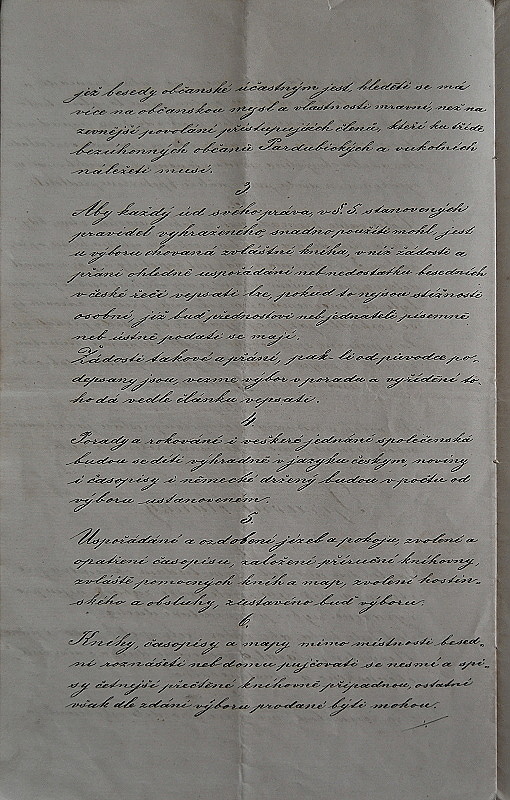 jež besedy občanské účastným jest, hleděti se má
více na občanskou mysl a vlastnosti mravní, než na
zevnější povolání přistupujících členů, kteří ku třídě
bezúhonných občanů Pardubických a vukolních
náležeti musí.
3.
Aby každý úd svého práva, v §. 5. stanovených
pravidel vyhraženého, snadno použíti mohl, jest
u výboru chovaná zvláštní kniha, v níž žádosti a
přání ohledně uspořádání neb nedostatku besedních
v české řeči vepsati lze, pokud to nejsou stížnosti
osobní, jež buď přednostovi neb jednateli písemně
neb ústně podati se mají.
Žádosti takové a přání, pak-li od původce po-
depsany jsou, vezme výbor v poradu a vyřízení to-
ho dá vedle článku vepsati.
4.
Porady a rokování i veškeré jednání společenská
budou se díti výhradně v jazyku českým, noviny
i časopisy i německé drženy budou v počtu od
výboru ustanoveném.
5.
Uspořádání a ozdobení jizeb a pokojů, zvolení a
opatření časopisů, založení příruční knihovny,
zvláště pomocných knih a map, zvolení hostin-
ského a obsluhy, zůstaveno buď výboru.
6.
Knihy, časopisy a mapy mimo místnosti besed-
ní roznášeti neb domů půjčovati se nesmí a spi-
sy četnější přečtené knihovně připadnou, ostatní
však dle zdání výboru prodané býti mohou.